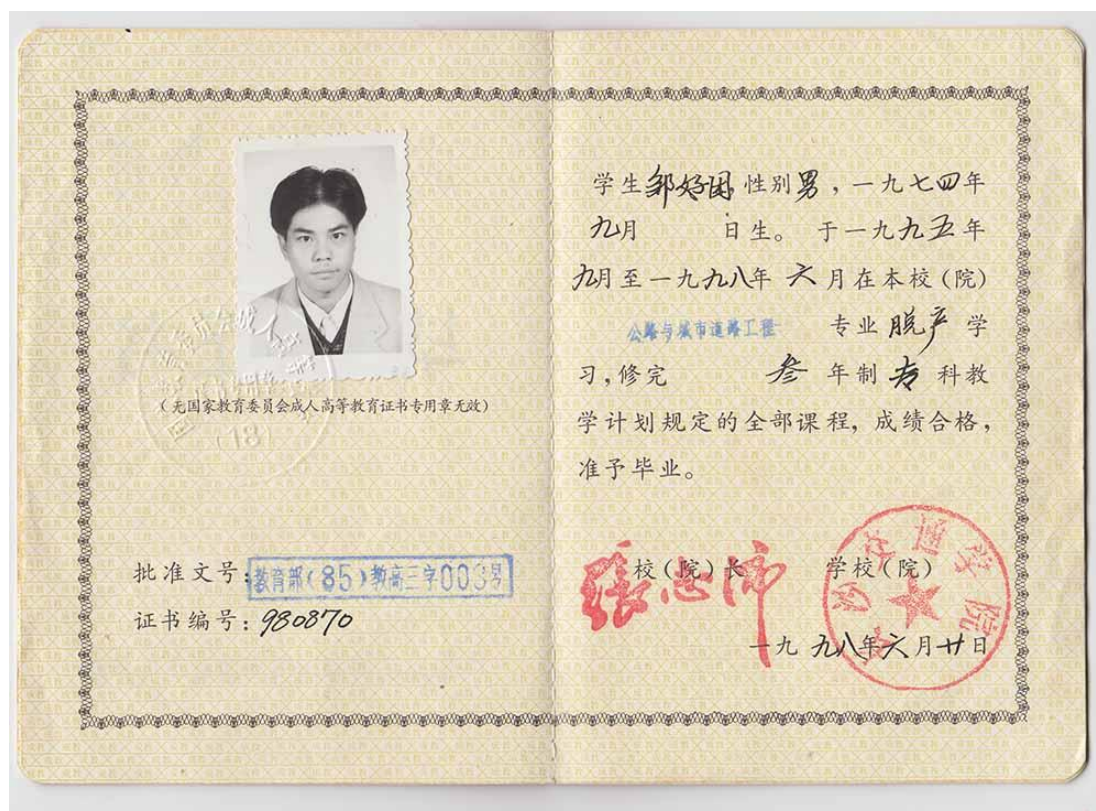 (无国家教育委员会成人高等教育证书专用章无效)
(18)
批准文号:教育部(85)教高三字003号
证书编号:980870
学生邹好因性别男,一九七四年
九月 日生。于一九九五年
九月至一九九八年六月在本校(院)
公路与城市道路工程 专业脱产学
习,修完 叁年制专科教
学计划规定的全部课程,成绩合格,
准予毕业。
校(院)长 学校(院)
沙交通学院
一九九八年六月廿日